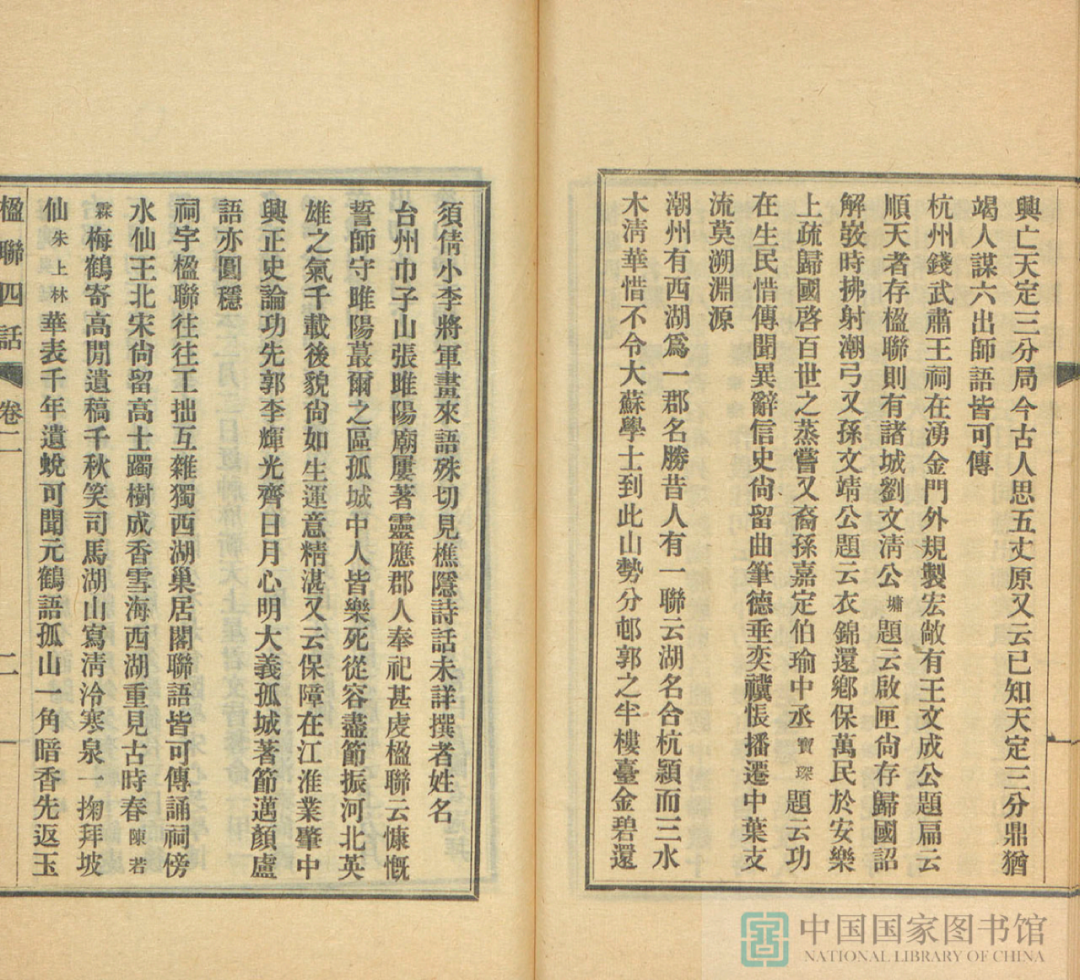 興亡天定三分局今古人思五丈原又云已知天定三分鼎猶
竭人謀六出師語皆可傳
杭州錢武肅王祠在湧金門外規製宏敞有王文成公題扁云
順天者存楹聯則有諸城劉文淸公墉題云啟匣尙存歸國詔
解嵌時拂射潮弓又孫文靖公題云衣錦還鄕保萬民於安樂
上疏歸國啓百世之蒸嘗又裔孫嘉定伯瑜中丞寶琛題云功
在生民惜傳聞異辭信史尙留曲筆德垂奕禩悵播遷中葉支
流莫溯淵源
潮州有西湖爲一郡名勝昔人有一聯云湖名合杭潁而三水
木淸華惜不令大蘇學士到此山勢分郫郭之半樓臺金碧還
須倩小李將軍畫來語殊切見樵隱詩話未詳撰者姓名
台州巾子山張睢陽廟屢著靈應郡人奉祀甚虔楹聯云慷慨
誓師守睢陽蕞爾之區孤城中人皆樂死從容盡節振河北英
雄之氣千載後貌尙如生運意精湛又云保障在江淮業肇中
興正史論功先郭李輝光齊日月心明大義孤城著節邁顏盧
語亦圓穩
祠宇楹聯往往工拙互雜獨西湖巢居閣聯語皆可傳誦祠傍
水仙王北宋尙留高士躅樹成香雪海西湖重見古時春陳若
霖梅鶴寄高閒遺稿千秋笑司馬湖山寫淸泠寒泉一掬拜坡
仙朱上林華表千年遺蛻可聞元鶴語孤山一角暗香先返玉
楹聯四話 卷二 二
中国国家图书馆
NATIONAL LIBRARY OF CHINA